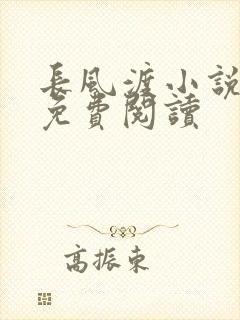 長風渡小說
免費閱讀
高振東